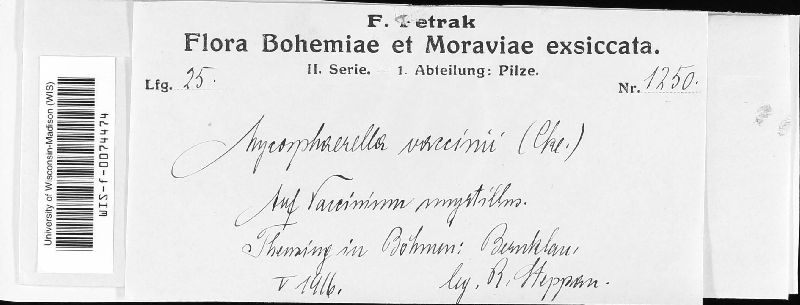 F. Petrak
Flora Bohemiae et Moraviae exsiccata.
II. Serie. — 1. Abteilung: Pilze.
Lfg. 25.
Nr. 1250.
Mycosphaerella vaccinii (Cke.)
Auf Vaccinium myrtillus.
Theusing in Böhmen: Bernklau,
V 1916. leg. R. Steppan.
University of Wisconsin-Madison (WIS)
WIS-f-0074474